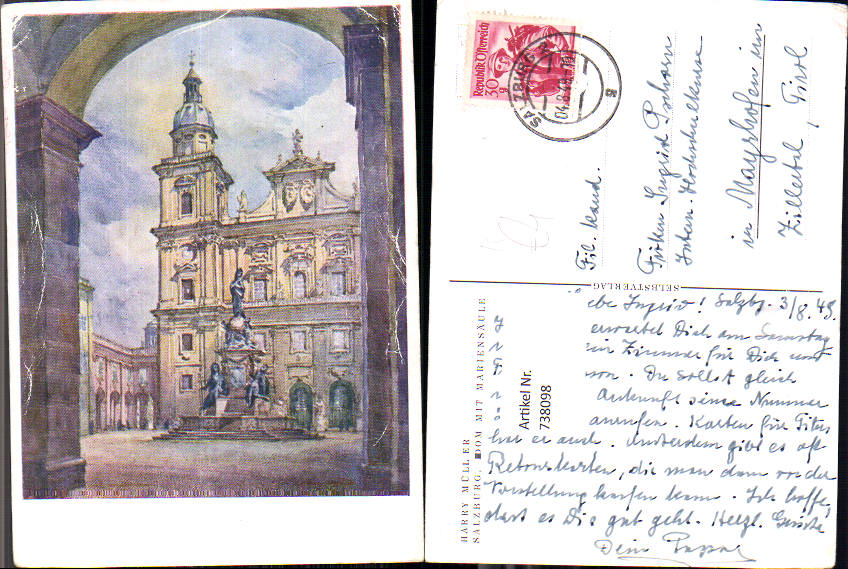 Republik Österreich
30 g
SALZBURG 2
Fil. Kand.
Ingrid
in Mayrhofen im
Zillertal, Tirol
SELBSTVERLAG
HARRY MÜLLER
SALZBURG, DOM MIT MARIENSÄULE
Artikel Nr.
738098
Ingrid! Salzbg. 3/8.48.
erwartet Dich am Samstag
ein Zimmer für Dich und
Du sollst gleich
Ankunft seine Nummer
anrufen. Karten für Titus
hat er auch. Ausserdem gibt es oft
Retourkarten, die man dann vor der
Vorstellung kaufen kann. Ich hoffe,
dass es Dir gut geht. Herzl. Grüsse
Dein Papa